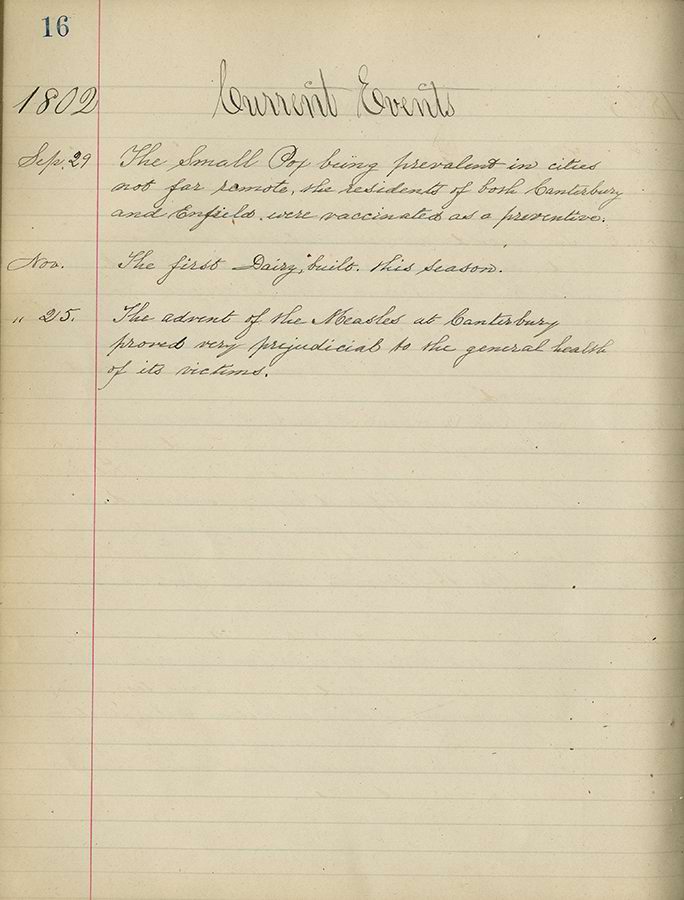 16
1802 Current Events
Sep. 29 The Small Pox being prevalent in cities
not far remote, the residents of both Canterbury
and Enfield were vaccinated as a preventive.
Nov. The first Dairy, built this season.
" 25. The advent of the Measles at Canterbury
proved very prejudicial to the general health
of its victims.